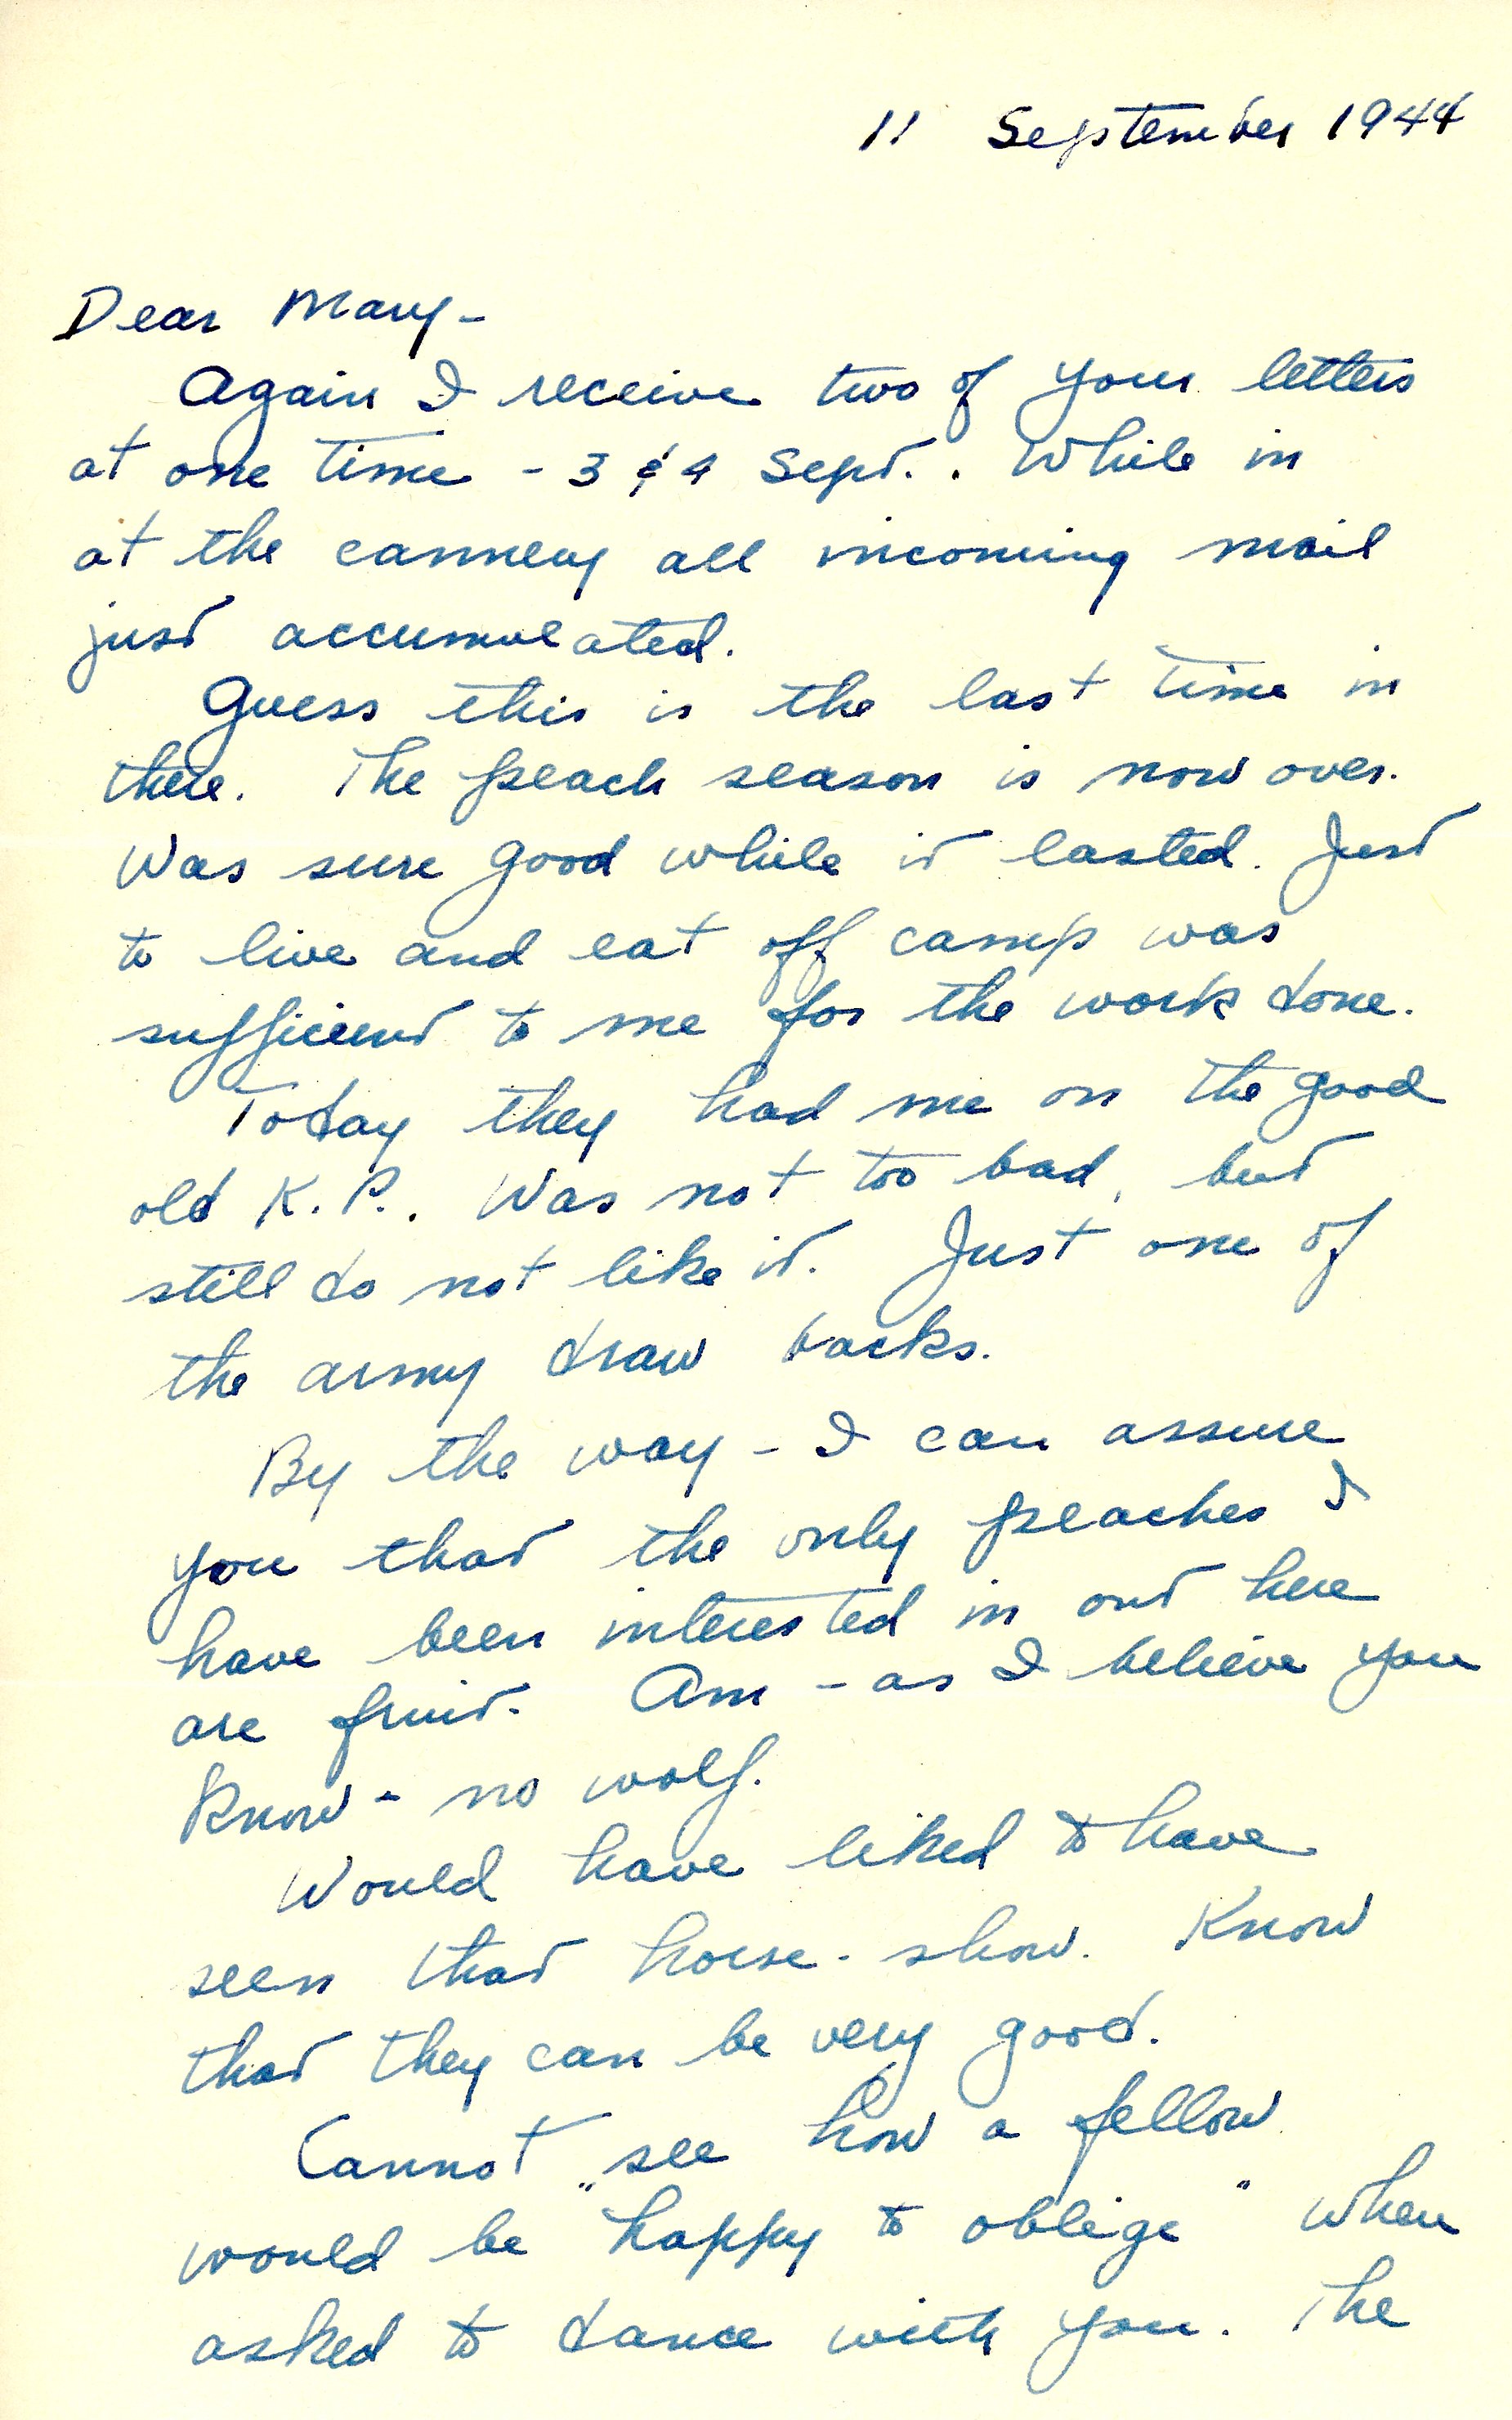 11 September 1944
Dear Mary -
Again I receive two of your letters
at one time - 3 & 4 Sept.. While in
at the cannery all incoming mail
just accumulated.
Guess this is the last time in
there. The peach season is now over.
Was sure good while it lasted. Just
to live and eat off camp was
sufficient to me for the work done.
Today they had me on the good
old K.P.. Was not too bad, but
still do not like it. Just one of
the army draw backs.
By the way - I can assure
you that the only peaches I
have been interested in out here
are fruit. Am - as I believe you
know - no wolf.
Would have liked to have
seen that horse-show. Know
that they can be very good.
Cannot see how a fellow
would be "happy to oblige" when
asked to dance with you. The